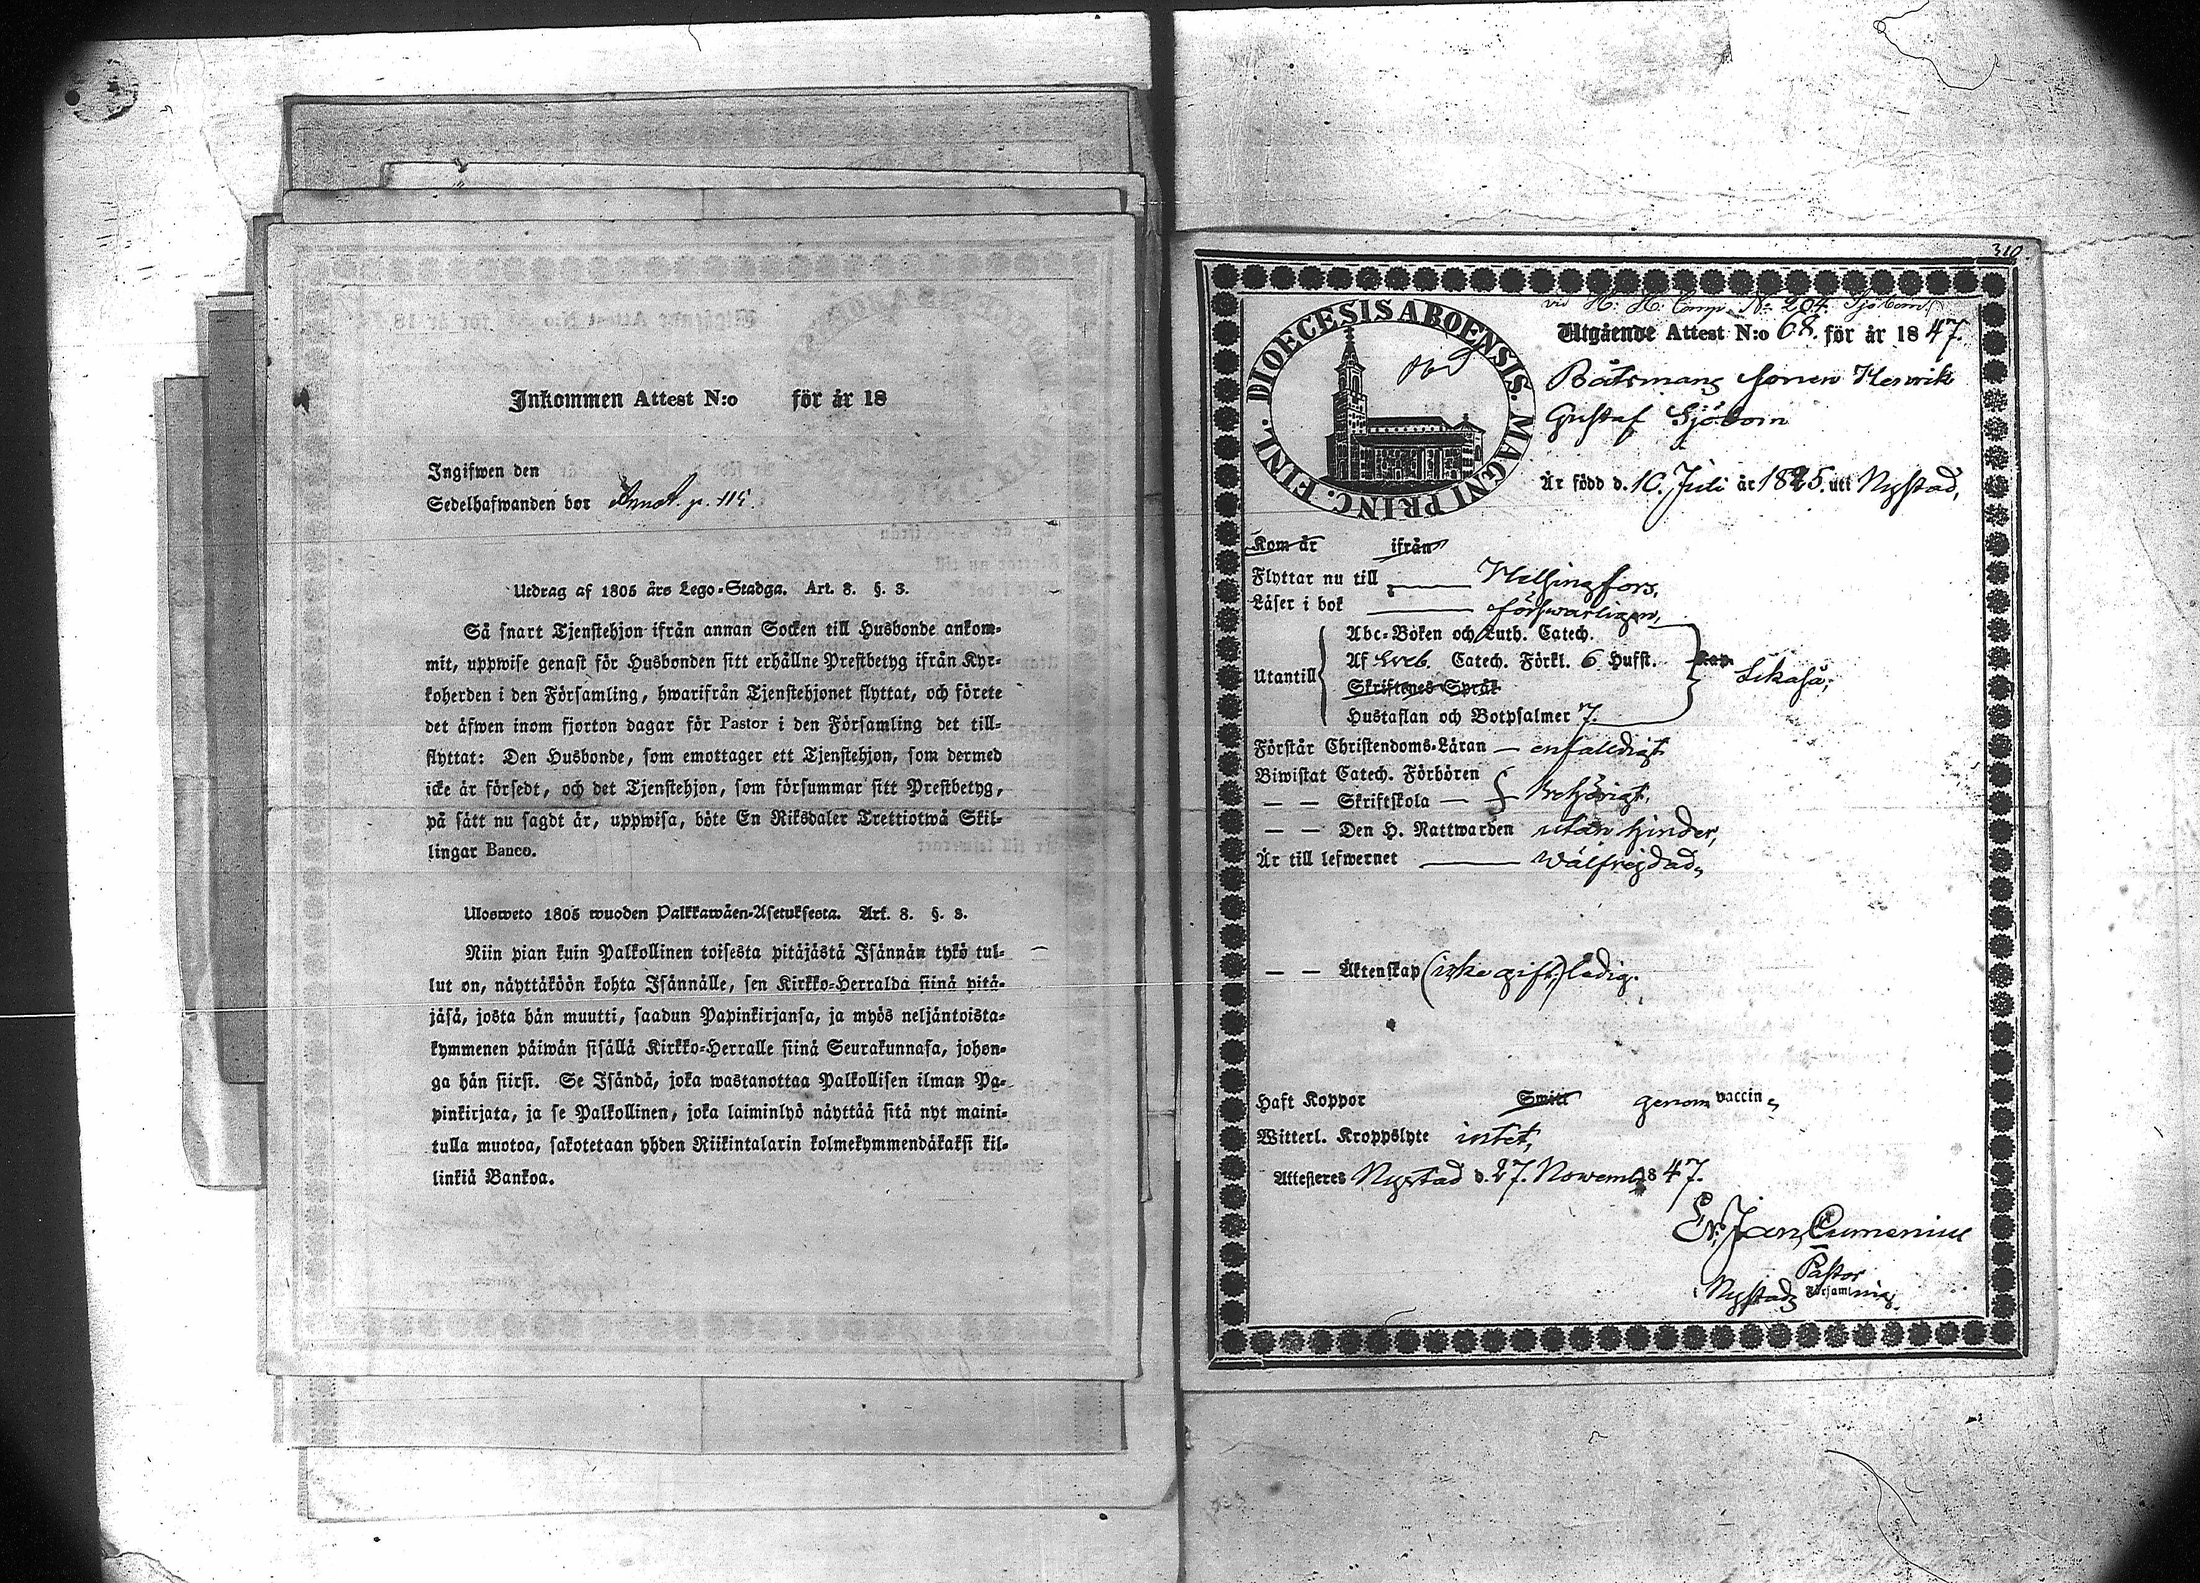 Inkommen Attest N:o för år 18
Ingifwen den
Sedelhafwanden bor Annot. p. 115.
Utdrag af 1805 års Lego-Stadga. Art. 8. §. 3.
Så snart Tjenstehjon ifrån annan Socken till Husbonde ankom-
mit, uppwise genast för Husbonden sitt erhållne Prestbetyg ifrån Kyr-
koherden i den Församling, hwarifrån Tjenstehjonet flyttat, och förete
det äfwen inom fjorton dagar för Pastor i den Församling det till-
flyttat: Den Husbonde, som emottager ett Tjenstehjon, som dermed
icke är försedt, och det Tjenstehjon, som försummar sitt Prestbetyg,
på sätt nu sagdt är, uppwisa, böte En Riksdaler Trettiotwå Skil-
lingar Banco.
Ulosweto 1805 wuoden Palkkawäen-Asetuksesta. Art. 8. §. 3.
Niin pian kuin Palkollinen toisesta pitäjästä Isännän tykö tul-
lut on, näyttäköön kohta Isännälle, sen Kirkko-Herralda siinä pitä-
jäsä, josta hän muutti, saadun Papinkirjansa, ja myös neljäntoista-
kymmenen päiwän sisällä Kirkko-Herralle siinä Seurakunnasa, johon-
ga hän siirsi. Se Isändä, joka wastanottaa Palkollisen ilman Pa-
pinkirjata, ja se Palkollinen, joka laiminlyö näyttää sitä nyt maini-
tulla muotoa, sakotetaan yhden Riikintalarin kolmekymmendäkaksi kil-
linkiä Bankoa.
310.
vid H. H. Comp. No 204. Sjöbom
DIOECESIS ABOENSIS. MAGNI PRINC. FINL.
Utgående Attest N:o 68. för år 1847.
Båtsmans sonen Henrik
Gustaf Sjöbom
Är född d. 10. Juli år 1825. uti Nystad,
Kom år ifrån
Flyttar nu till Helsingfors,
Läser i bok försvarligen,
Utantill
Abc-Boken och Luth. Catech.
Af Sveb. Catech. Förkl. 6 Hufst.
Skriftenes Språk
Hustaflan och Botpsalmer 7.
kan
Likaså;
Förstår Christendoms-Läran — enfaldigt
Biwistat Catech. Förhören
— — Skriftskola — behörigt,
— — Den H. Nattwarden utan hinder,
Är till lefwernet wälfrejdad,
— — Äktenskap (icke gift,) ledig.
Haft Koppor Smitt genom vaccin,
Witterl. Kroppslyte intet,
Attesteres Nystad d. 27. Novemb. 1847.
Er. Joh. Cumenius
Pastor
i Nystads Församling.